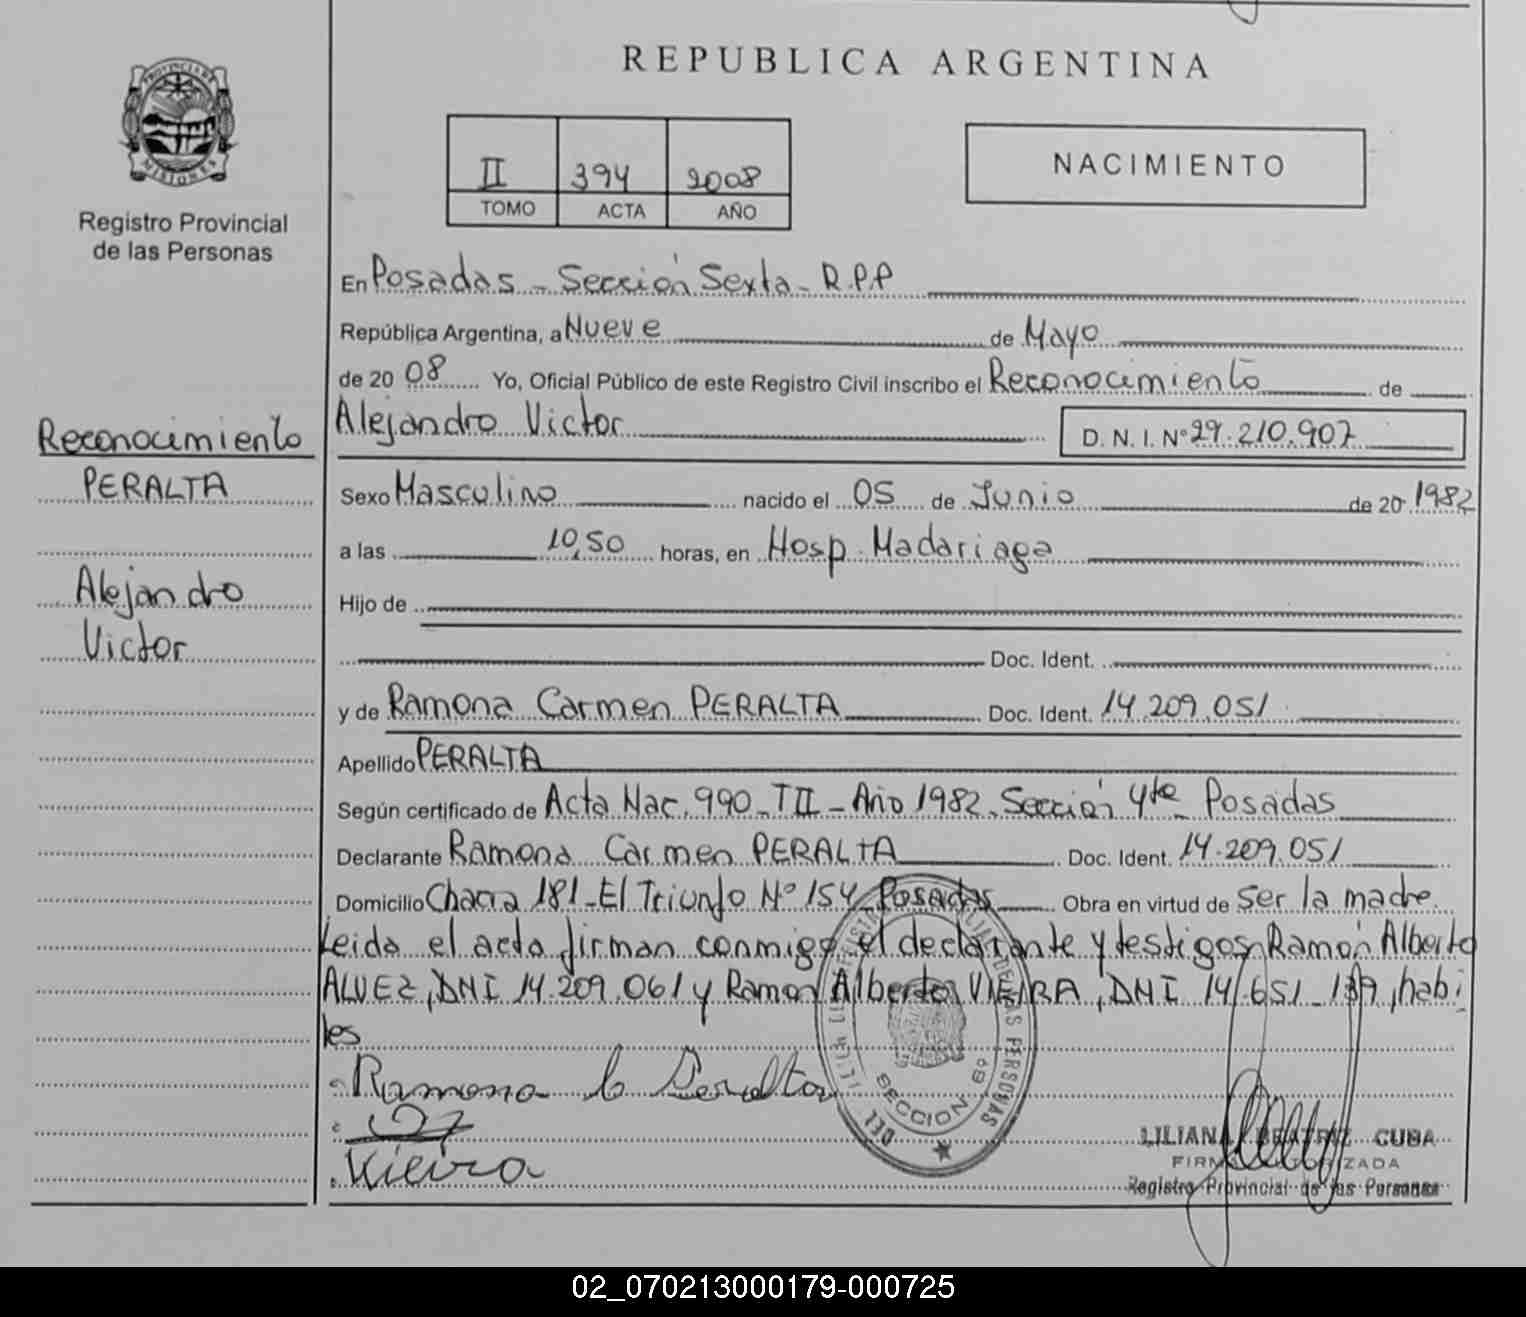 REPUBLICA ARGENTINA
PROVINCIA DE MISIONES
Registro Provincial
de las Personas
II 394 2008
TOMO ACTA AÑO
NACIMIENTO
En Posadas - Sección Sexta - R.P.P
República Argentina, a Nueve de Mayo
de 20 08 Yo, Oficial Público de este Registro Civil inscribo el Reconocimiento de
Alejandro Victor D. N. I. Nº 29.210.907
Reconocimiento
PERALTA
Alejandro
Victor
Sexo Masculino nacido el 05 de Junio de 20 1982
a las 10,50 horas, en Hosp. Madariaga
Hijo de
Doc. Ident.
y de Ramona Carmen PERALTA Doc. Ident. 14.209.051
Apellido PERALTA
Según certificado de Acta Nac. 990 - TII - Año 1982 - Sección 4ta Posadas
Declarante Ramona Carmen PERALTA Doc. Ident. 14.209.051
Domicilio Chacra 181 - El Triunfo Nº 154 Posadas Obra en virtud de ser la madre
Leida el acta firman conmigo el declarante y testigos Ramón Alberto
ALVEZ, DNI 14.209.061 y Ramon Alberto VIEIRA, DNI 14.651.139, habi
les
Ramona C Peralta
Vieira
REGISTRO PROVINCIAL DE LAS PERSONAS
SECCION 6º
LILIANA BEATRIZ CUBA
FIRMA AUTORIZADA
Registro Provincial de las Personas
02_070213000179-000725